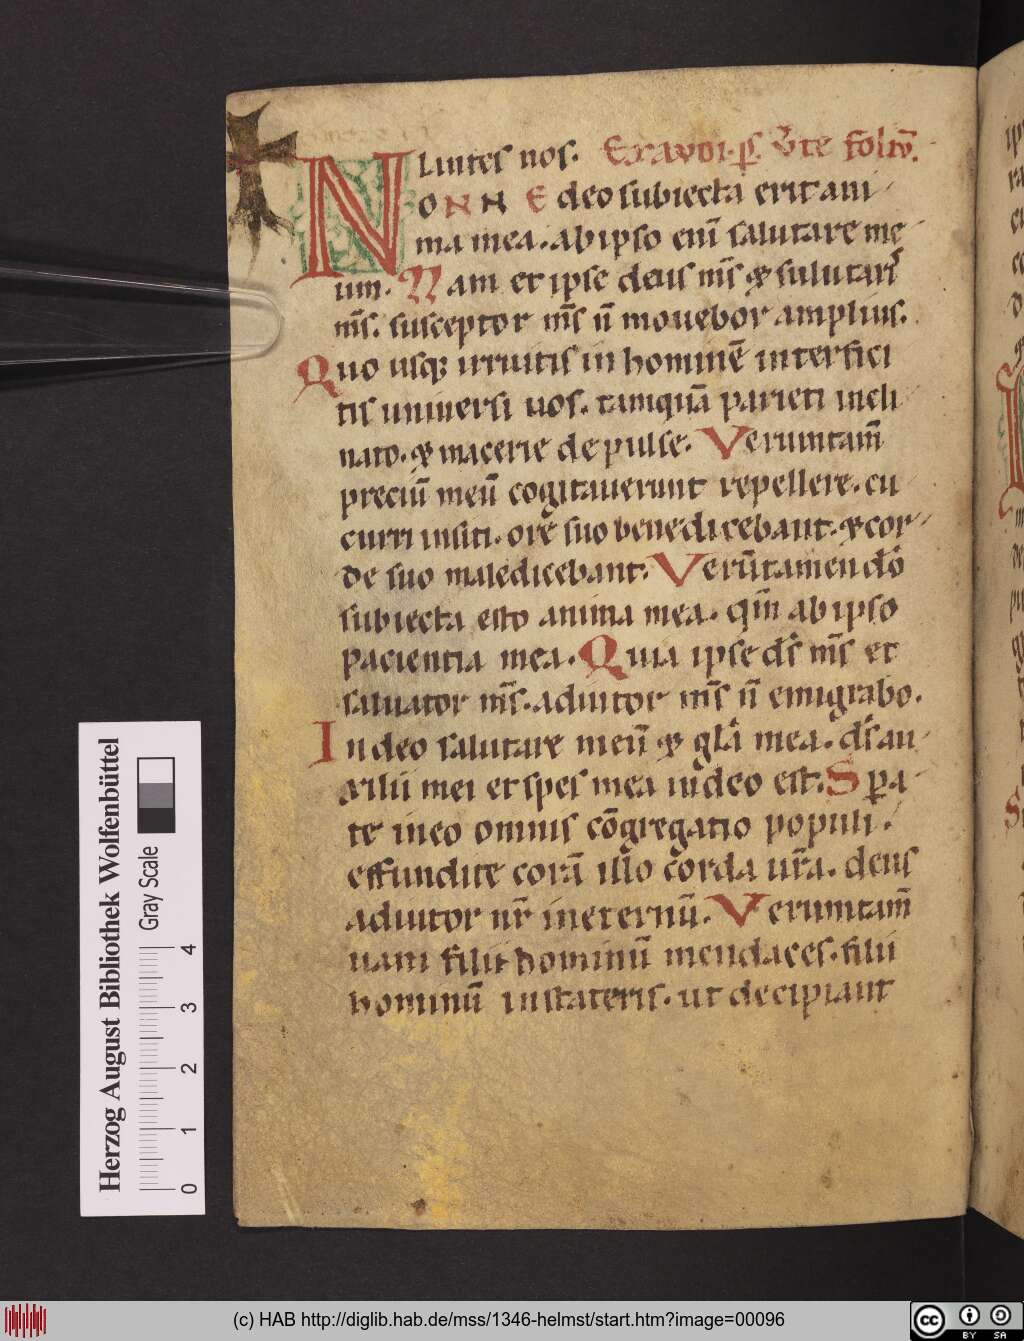 Lintes nos. Exaudi. ps̄. Vte fol̄tō.
NONNE deo subiecta erit ani
ma mea. ab ipso eni salutare me
um. Nam et ipse deus m̄s & salutaris
m̄s. susceptor m̄s ñ mouebor amplius.
Quo usq; irruitis in hominē interfici
tis uniuersi uos. tamquā parieti incli
nato. & macerie depulse. Veruntam̄
preciū meū cogitauerunt repellere. cu
curri insiti. ore suo benedicebant. & cor
de suo maledicebant. Verūtamen dō
subiecta esto anima mea. qm̄ ab ipso
pacientia mea. Quia ipse ds̄ m̄s et
saluator m̄s. adiutor m̄s ñ emigrabo.
In deo salutare meū & glā mea. ds̄ au
xilii mei et spes mea in deo est. Spa
te in eo omnis cōgregatio populi.
effundite corā illo corda ura. deus
adiutor nr̄ ineternū. Veruntam̄
uani filii hominū mendaces. filii
hominū instateris. ut decipiant
Herzog August Bibliothek Wolfenbüttel
Gray Scale
0 1 2 3 4
(c) HAB http://diglib.hab.de/mss/1346-helmst/start.htm?image=00096
cc BY SA